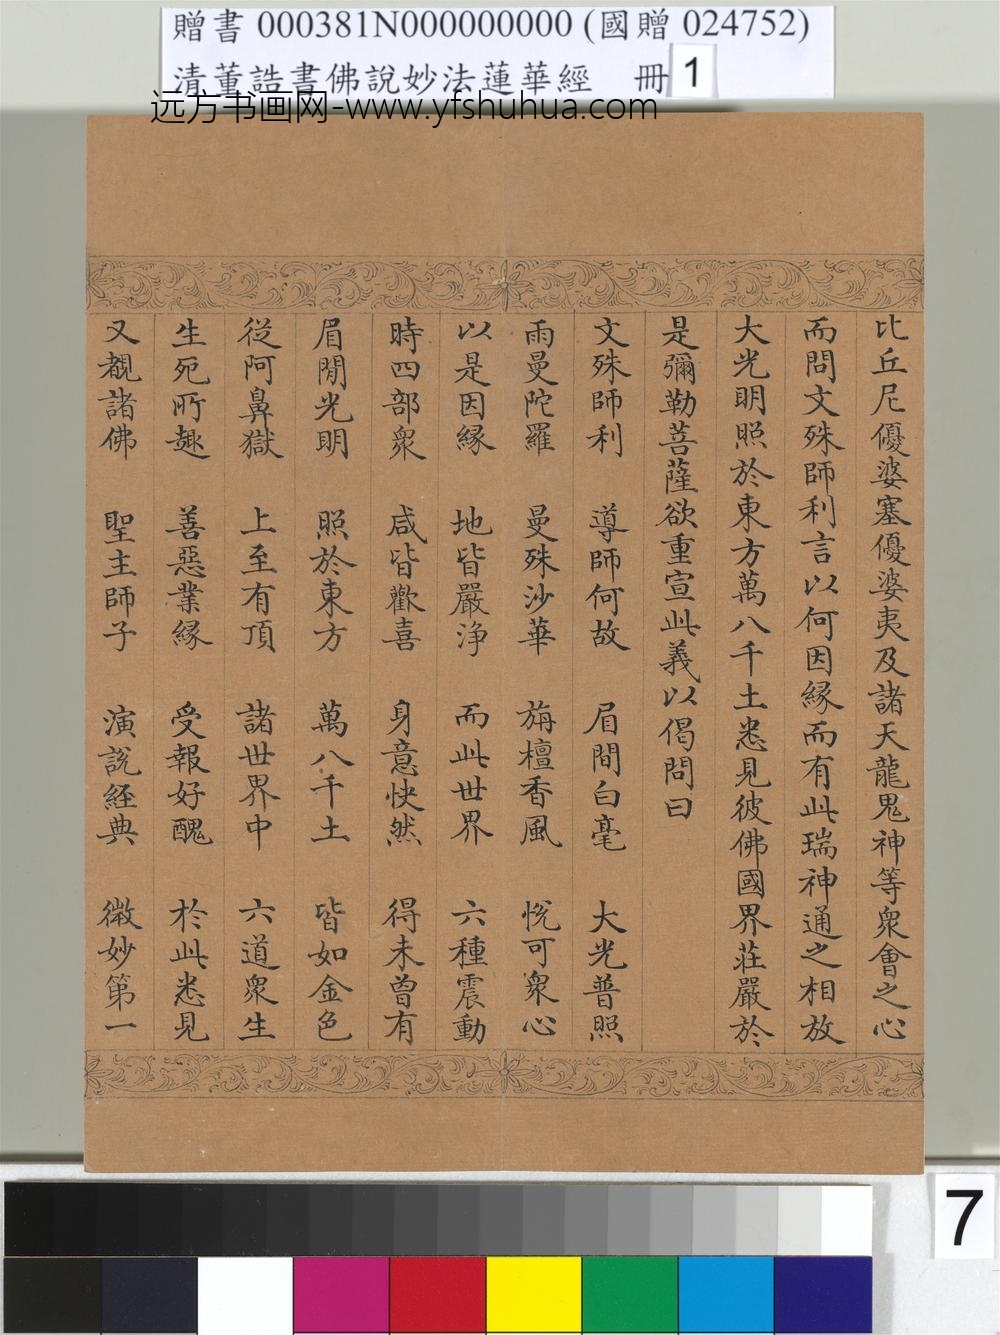 贈書 000381N000000000 (國贈 024752)
清董誥書佛說妙法蓮華經 冊 1
远方书画网-www.yfshuhua.com
比丘尼優婆塞優婆夷及諸天龍鬼神等衆會之心
而問文殊師利言以何因緣而有此瑞神通之相放
大光明照於東方萬八千土悉見彼佛國界莊嚴於
是彌勒菩薩欲重宣此義以偈問曰
文殊師利 導師何故 眉間白毫 大光普照
雨曼陀羅 曼殊沙華 旃檀香風 悅可衆心
以是因緣 地皆嚴淨 而此世界 六種震動
時四部衆 咸皆歡喜 身意快然 得未曾有
眉間光明 照於東方 萬八千土 皆如金色
從阿鼻獄 上至有頂 諸世界中 六道衆生
生死所趣 善惡業緣 受報好醜 於此悉見
又覩諸佛 聖主師子 演說經典 微妙第一
7